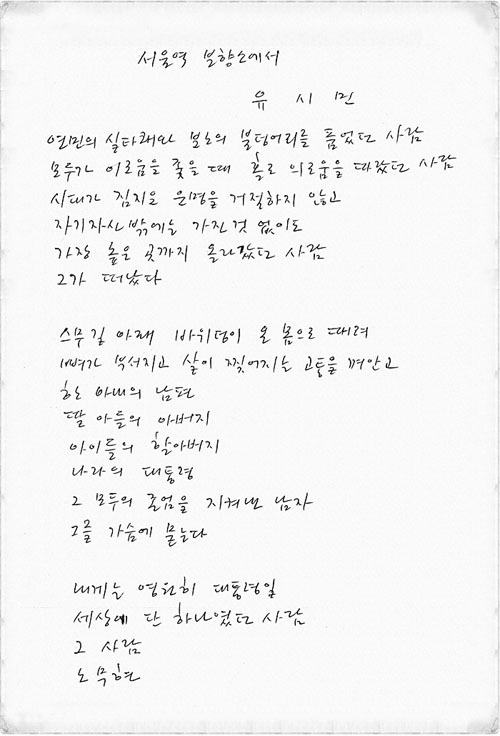 서울역 분향소에서
유 시 민
연민의 실타래와 분노의 불덩어리를 품었던 사람
모두가 이로움을 좇을 때 홀로 의로움을 따랐던 사람
시대가 짐지운 운명을 거절하지 않고
자기자신 밖에는 가진것 없이도
가장 높은 곳까지 올라갔던 사람
그가 떠났다
스무길 아래 바위덩이 온 몸으로 때려
뼈가 부서지고 살이 찢어지는 고통을 껴안고
한 아내의 남편
딸 아들의 아버지
아이들의 할아버지
나라의 대통령
그 모두의 존엄을 지켜낸 남자
그를 가슴에 묻는다
내게는 영원히 대통령일
세상에 단 하나였던 사람
그 사람
노무현